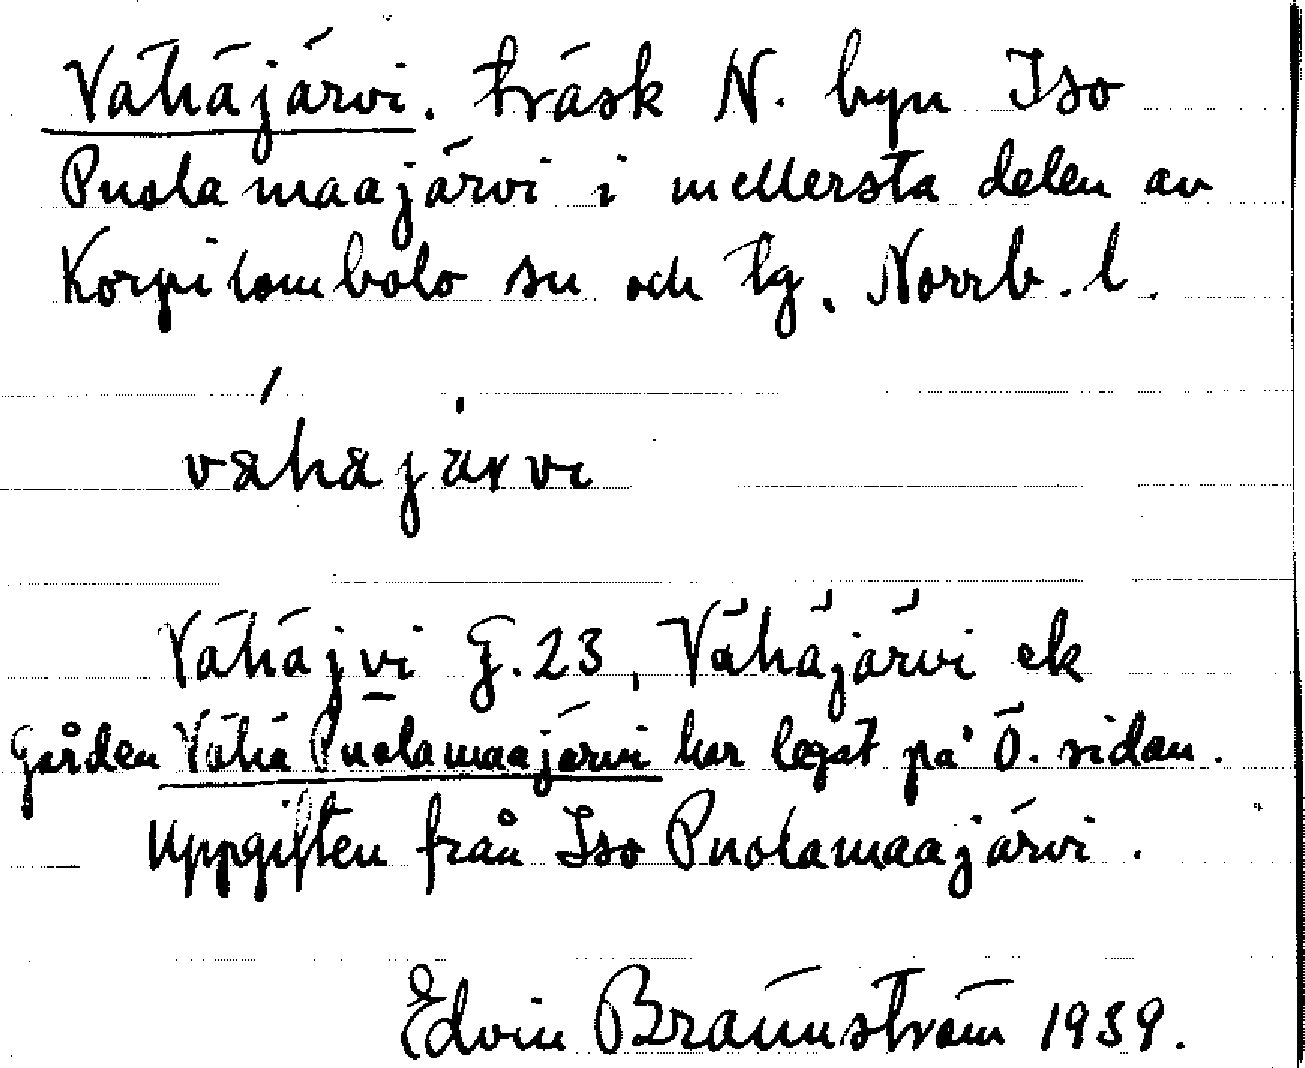 Vähäjärvi. träsk N. byn Iso
Puolamaajärvi i mellersta delen av
Korpilombolo sn och tg. Norrb. l.
vähäjärvi
Vähäjvi G.23, Vähäjärvi ek
Gården Vähä Puolamaajärvi har legat på Ö. sidan.
Uppgiften från Iso Puolamaajärvi.
Edvin Brännström 1939.